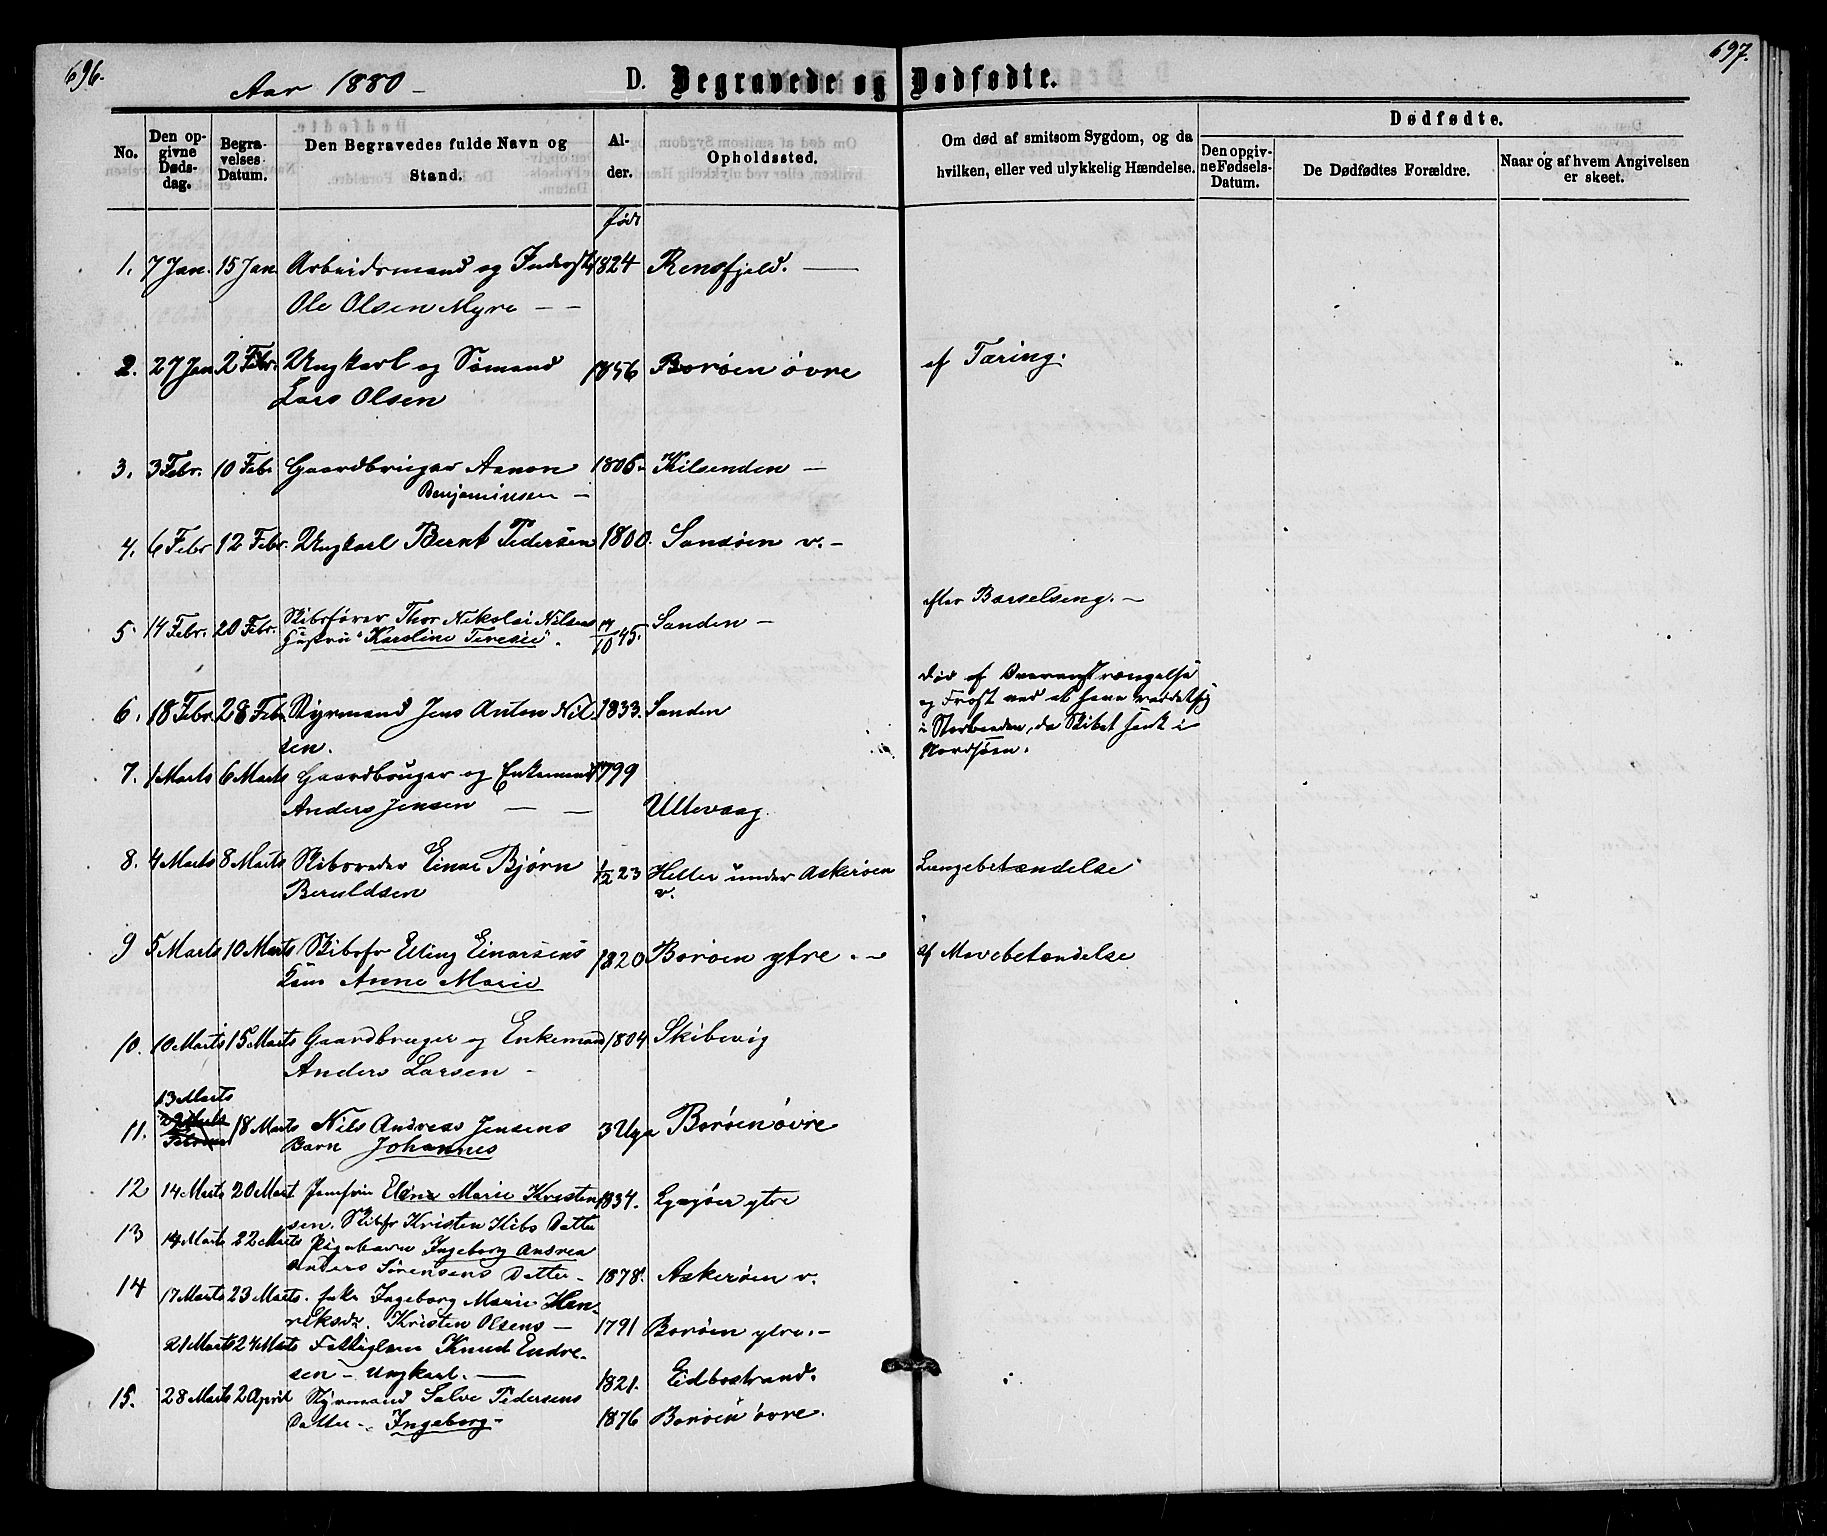 696.
697.
Aar 1880 –
D. Begravede og Dødfødte.
No.
Den opgivne Dødsdag.
Begravelses Datum.
Den Begravedes fulde Navn og Stand.
Alder.
Opholdssted.
Om død af smitsom Sygdom, og da hvilken, eller ved ulykkelig Hændelse.
Dødfødte.
Den opgivne Fødsels-Datum.
De Dødfødtes Forældre.
Naar og af hvem Angivelsen er skeet.
født
1. 7 Jan. 15 Jan. Arbeidsmand og Inderst 1824 Rensfjeld. —
Ole Olsen Myre — —
2. 27 Jan 2 Febr. Ungkarl og Sømand 1856 Borøen øvre af Tæring.
Lars Olsen
3. 3 Febr. 10 Febr Gaardbruger Aanon 1805. Kilsenden —
Benjaminsen —
4. 6 Febr 12 Febr. Ungkarl Bernt Pedersen 1800. Sandøen v. –
5. 14 Febr. 20 Febr. Skibsfører Thor Nikolai Nilsens 17/10 45. Sanden – efter Barselseng. –
Hustru "Karoline Teresie".
6. 18 Febr 28 Febr Styrmand Jens Anton Nil- 1833. Sanden
sen.
død af Overanstrængelse
og Frost ved at have reddet sig
i Storbaaden, da Skibet sank i
Nordsøen.
7. 1 Marts 6 Marts Gaardbruger og Enkemand 1799
Anders Jensen — — Ullevaag.
8. 4 Marts 8 Marts Skibsreder Einar Bjørn 1/2 23 Hellen under Askerøen Lungebetændelse
Beruldsen v.
9 5 Marts 10 Marts Skibsfr Elling Einarsens 1820 Borøen ytre. – af Mavebetændelse
Kone Anne Marie
10. 10 Marts 15 Marts Gaardbruger og Enkemand 1804 Skibevig
Anders Larsen –
13 Marts
11. 18 Marts Nils Andreas Jensens 3 Uger Borøen øvre
Barn Johannes
12 14 Marts 20 Mart Jomfru Elina Marie Kristen- 1834. Lyngøer ytre
sen. Skibsfr Kristen Kibs Datter
13 14 Marts 22 Marts Pigebarn Ingeborg Andrea
Anders Sørensens Datter – 1878. Askerøen v.
14 17 Marts 23 Marts. Enke Ingeborg Marie Hen-
riksdr. Kristen Olsens – 1791 Borøen ytre. –
21 Marts 24 Marts Fattiglem Knud Endre-
sen – Ungkarl. — 1821. Eidbostrand.
15. 28 Marts 2 April Styrmand Salve Pedersens
Datter –. Ingeborg – 1876 Borøen øvre.